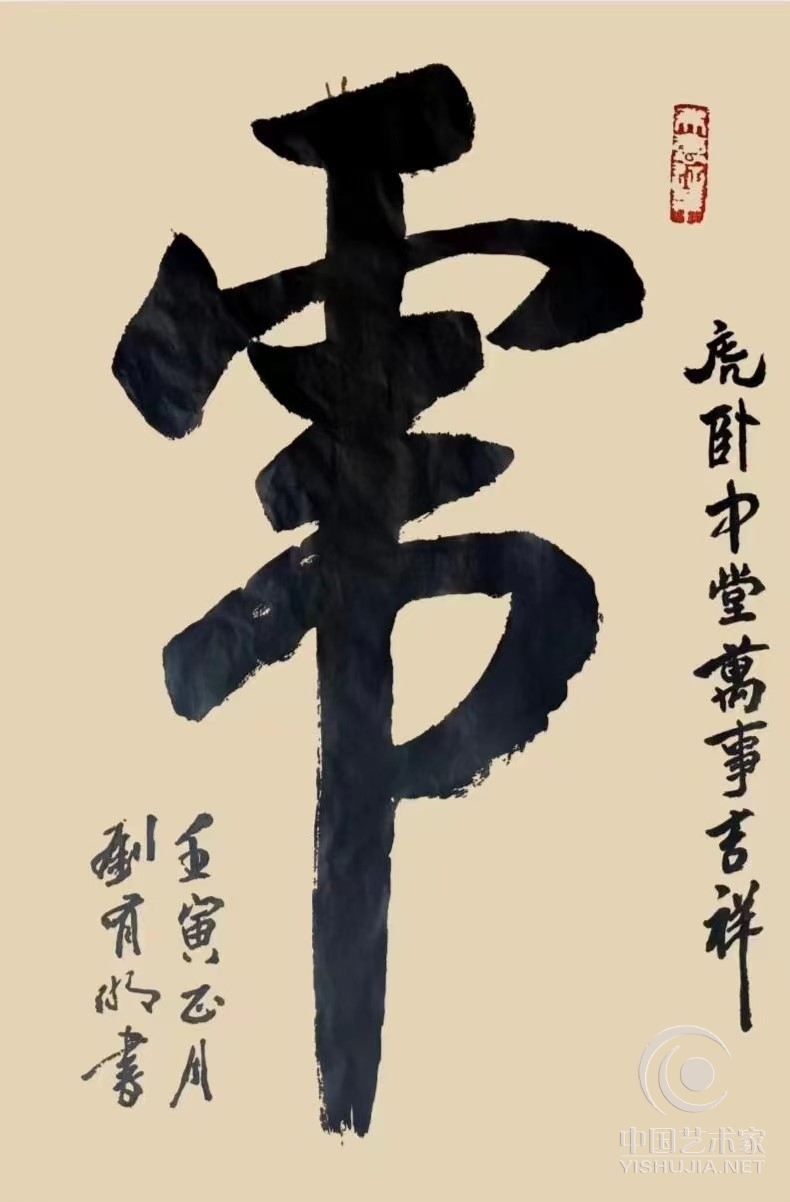 虎卧中堂萬事吉祥
虎
壬寅正月
劉有 書
中国艺术家
YISHUJIA.NET